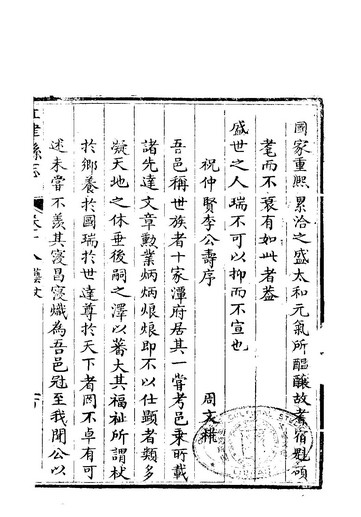 國家重熙累洽之盛太和元氣所醞釀故耆宿魁碩
耄而不衰有如此者蓋
盛世之人瑞不可以抑而不宣也
祝仲賢李公壽序
周文
吾邑稱世族者十家潭府居其一嘗考邑乘所載
諸先達文章勳業炳炳烺烺即不以仕顯者類多
凝天地之休垂後嗣之澤以蕃大其福祉所謂杖
於鄉養於國瑞於世達尊於天下者罔不卓有可
述未嘗不羨其寖昌寖熾為吾邑冠至我閒公以
江津縣志
卷十八 藝文